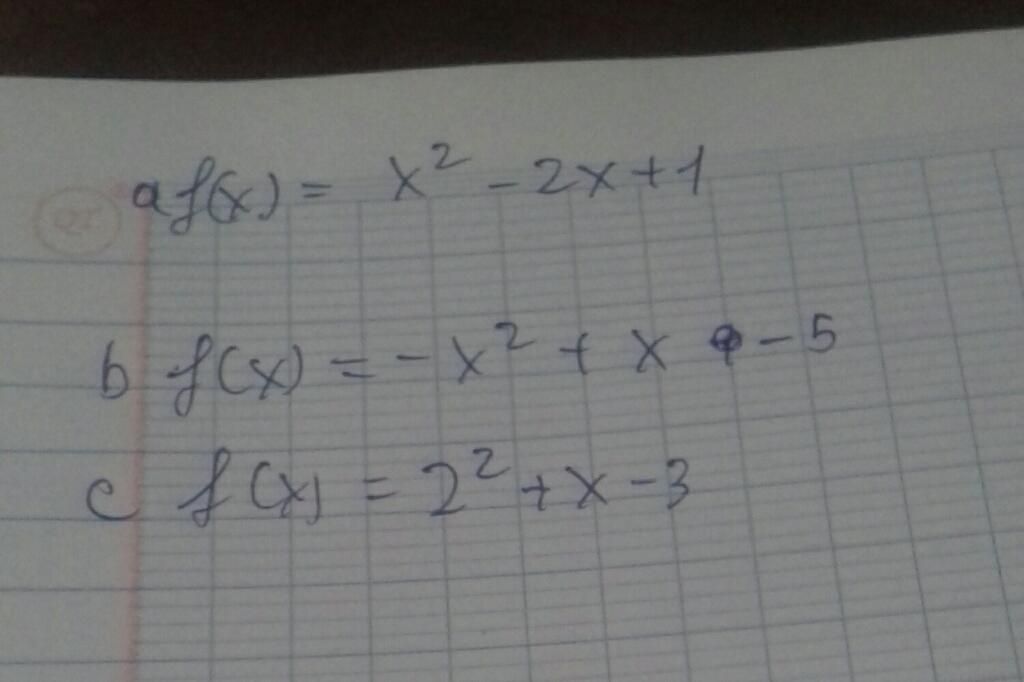 a f(x) = x² - 2x + 1
b f(x) = - x² + x - 5
c f(x) = 2² + x - 3